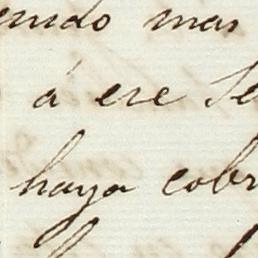 enido mas
á ese Se
haya cobr